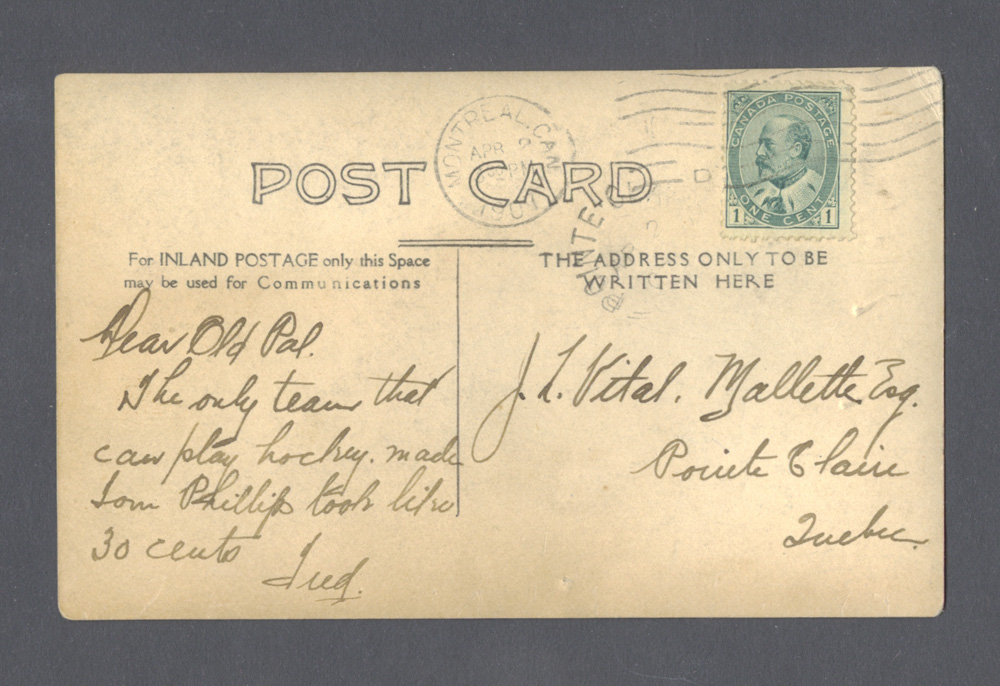 MONTREAL, CAN.
APR 2
PM
1907
CANADA POSTAGE
1 ONE CENT 1
POST CARD
POINTE
For INLAND POSTAGE only this Space
may be used for Communications
THE ADDRESS ONLY TO BE
WRITTEN HERE
Dear Old Pal.
The only team that
can play hockey. made
Tom Phillips look like
30 cents
Fred.
J. L. Vital. Mallette Esq.
Pointe Claire
Quebec.